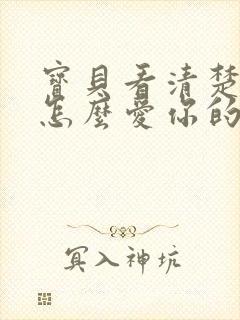 寶貝看清楚
怎麼愛你的
冥入神坑